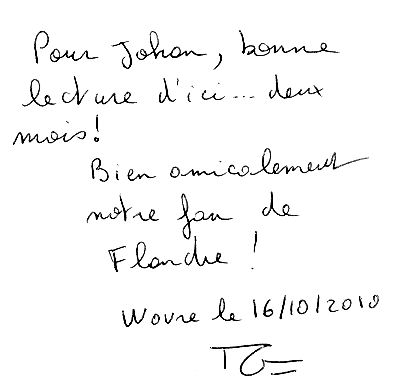 Pour Johan, bonne
lecture d'ici... deux
mois!
Bien amicalement
notre fan de
Flandre !
Wovre le 16/10/2010